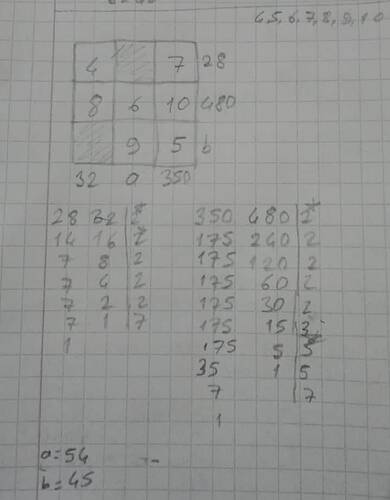 4,5,6,7,8,9,10
4 7 28
8 6 10 480
9 5 b
32 a 350
28 32 2
14 16 2
7 8 2
7 4 2
7 2 2
7 1 7
1
350 480 2
175 240 2
175 120 2
175 60 2
175 30 2
175 15 3
175 5 5
35 1 5
7 7
1
a=54
b=45